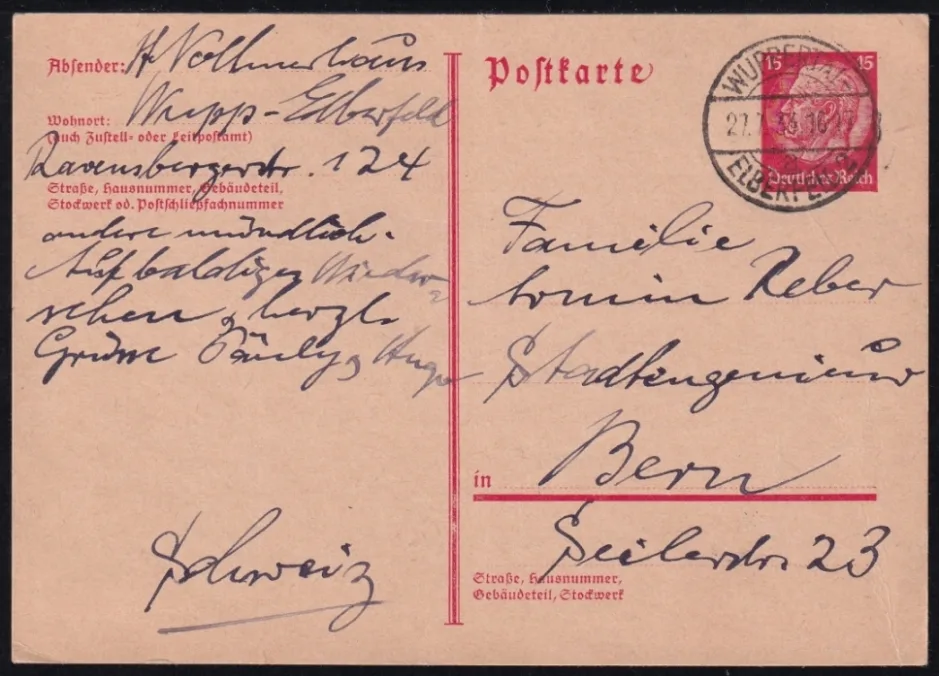 Absender: H Vollmerhaus
Wohnort: Wupp-Elberfeld
(auch Zustell- oder Leitpostamt)
Ravensbergerstr. 124
Straße, Hausnummer, Gebäudeteil,
Stockwerk od. Postschließfachnummer
andere mündlich.
Auf baldiges Wieder-
sehen, herzl.
Grüsse Pauly Hugo
Schweiz
Postkarte
15 15
Deutsches Reich
WUPPERTAL
ELBERFELD
Familie
Reber
Stadtingenieur
in Bern
Seilerstr 23
Straße, Hausnummer,
Gebäudeteil, Stockwerk